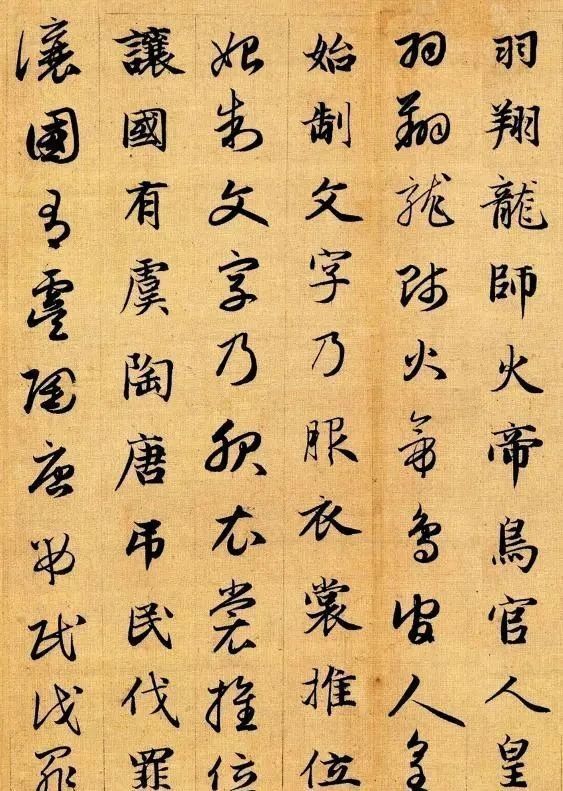 羽翔龍師火帝鳥官人皇
羽翔龍師火帝鳥官人皇
始制文字乃服衣裳推位
始制文字乃服衣裳推位
讓國有虞陶唐弔民伐罪
讓國有虞陶唐弔民伐罪